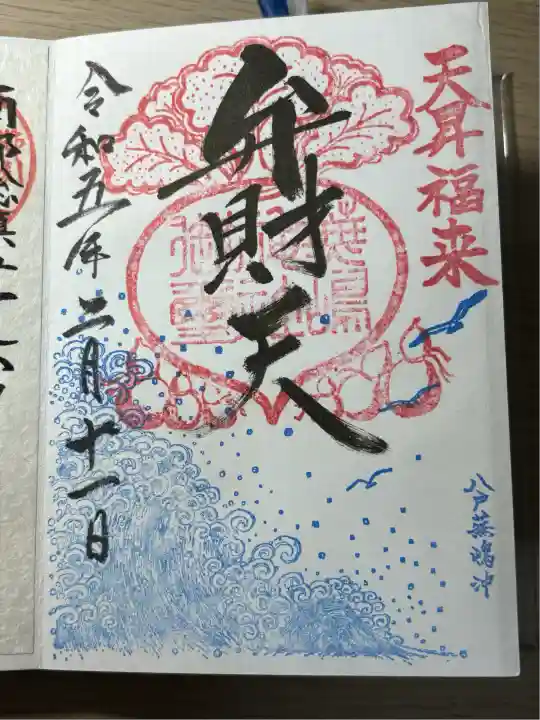 天昇福来
弁財天
令和五年二月十一日
八戸蕪嶋沖